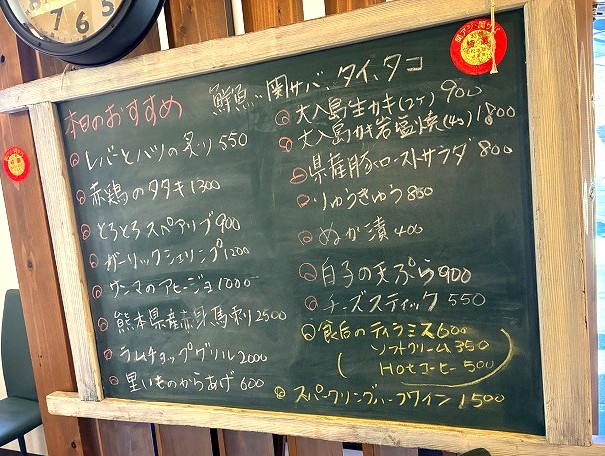 本日のおすすめ
鮮魚…関サバ、タイ、タコ
レバーとハツの炙り 550
赤鶏のタタキ 1300
とろとろスペアリブ 900
ガーリックシュリンプ 1200
サンマのアヒージョ 1000
熊本県産赤身馬刺し 2500
ラムチョップグリル 2000
里いものからあげ 600
大入島生カキ(2ケ) 900
大入島カキ岩塩焼(4ヶ) 1800
県産豚ローストサラダ 800
りゅうきゅう 850
ぬか漬 400
白子の天ぷら 900
チーズスティック 550
食后のティラミス 600
ソフトクリーム 350
Hotコーヒー 500
スパークリングハーフワイン 1500
6
7
8